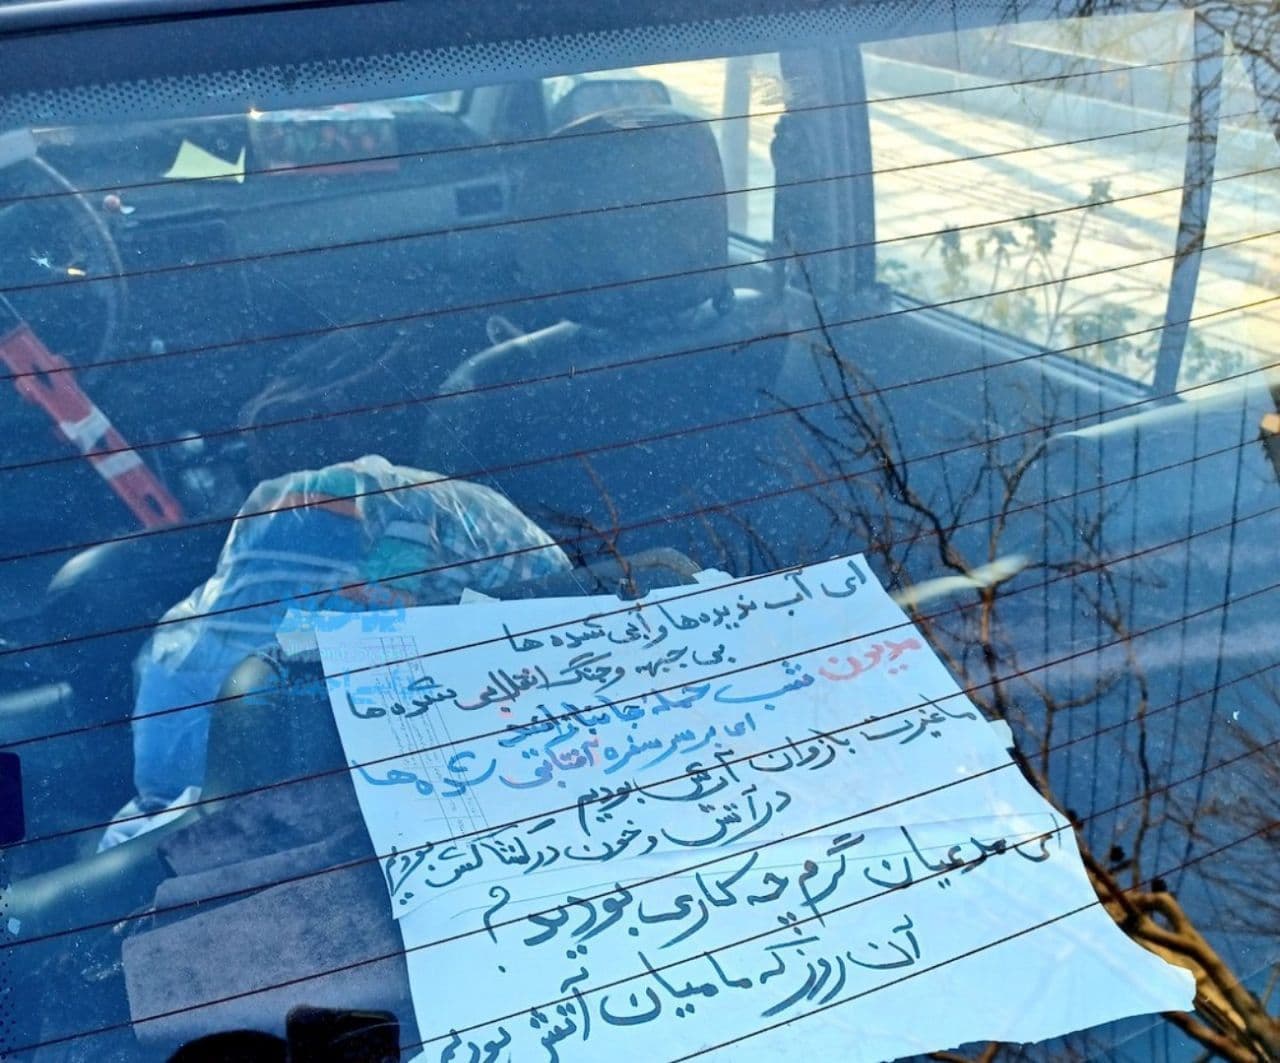 ای آب ندیده‌ها و آبی شده ها
بی جبهه و جنگ انقلابی شده ها
مدیون شب حمله جانبازانید
ای بر سر سفره آفتابی شده ها
ما غیرت بازوان آرش بودیم
در آتش و خون در کشاکش بودیم
ای مدعیان گرم چه کاری بودید؟
آن روز که ما میان آتش بودیم